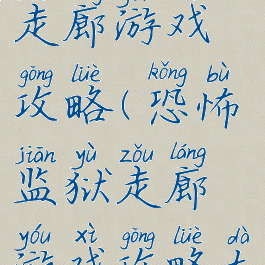 走廊游戏
gōng lüè kǒng bù
攻略(恐怖
jiān yù zǒu láng
监狱走廊
yóu xì gōng lüè dà
游戏攻略大